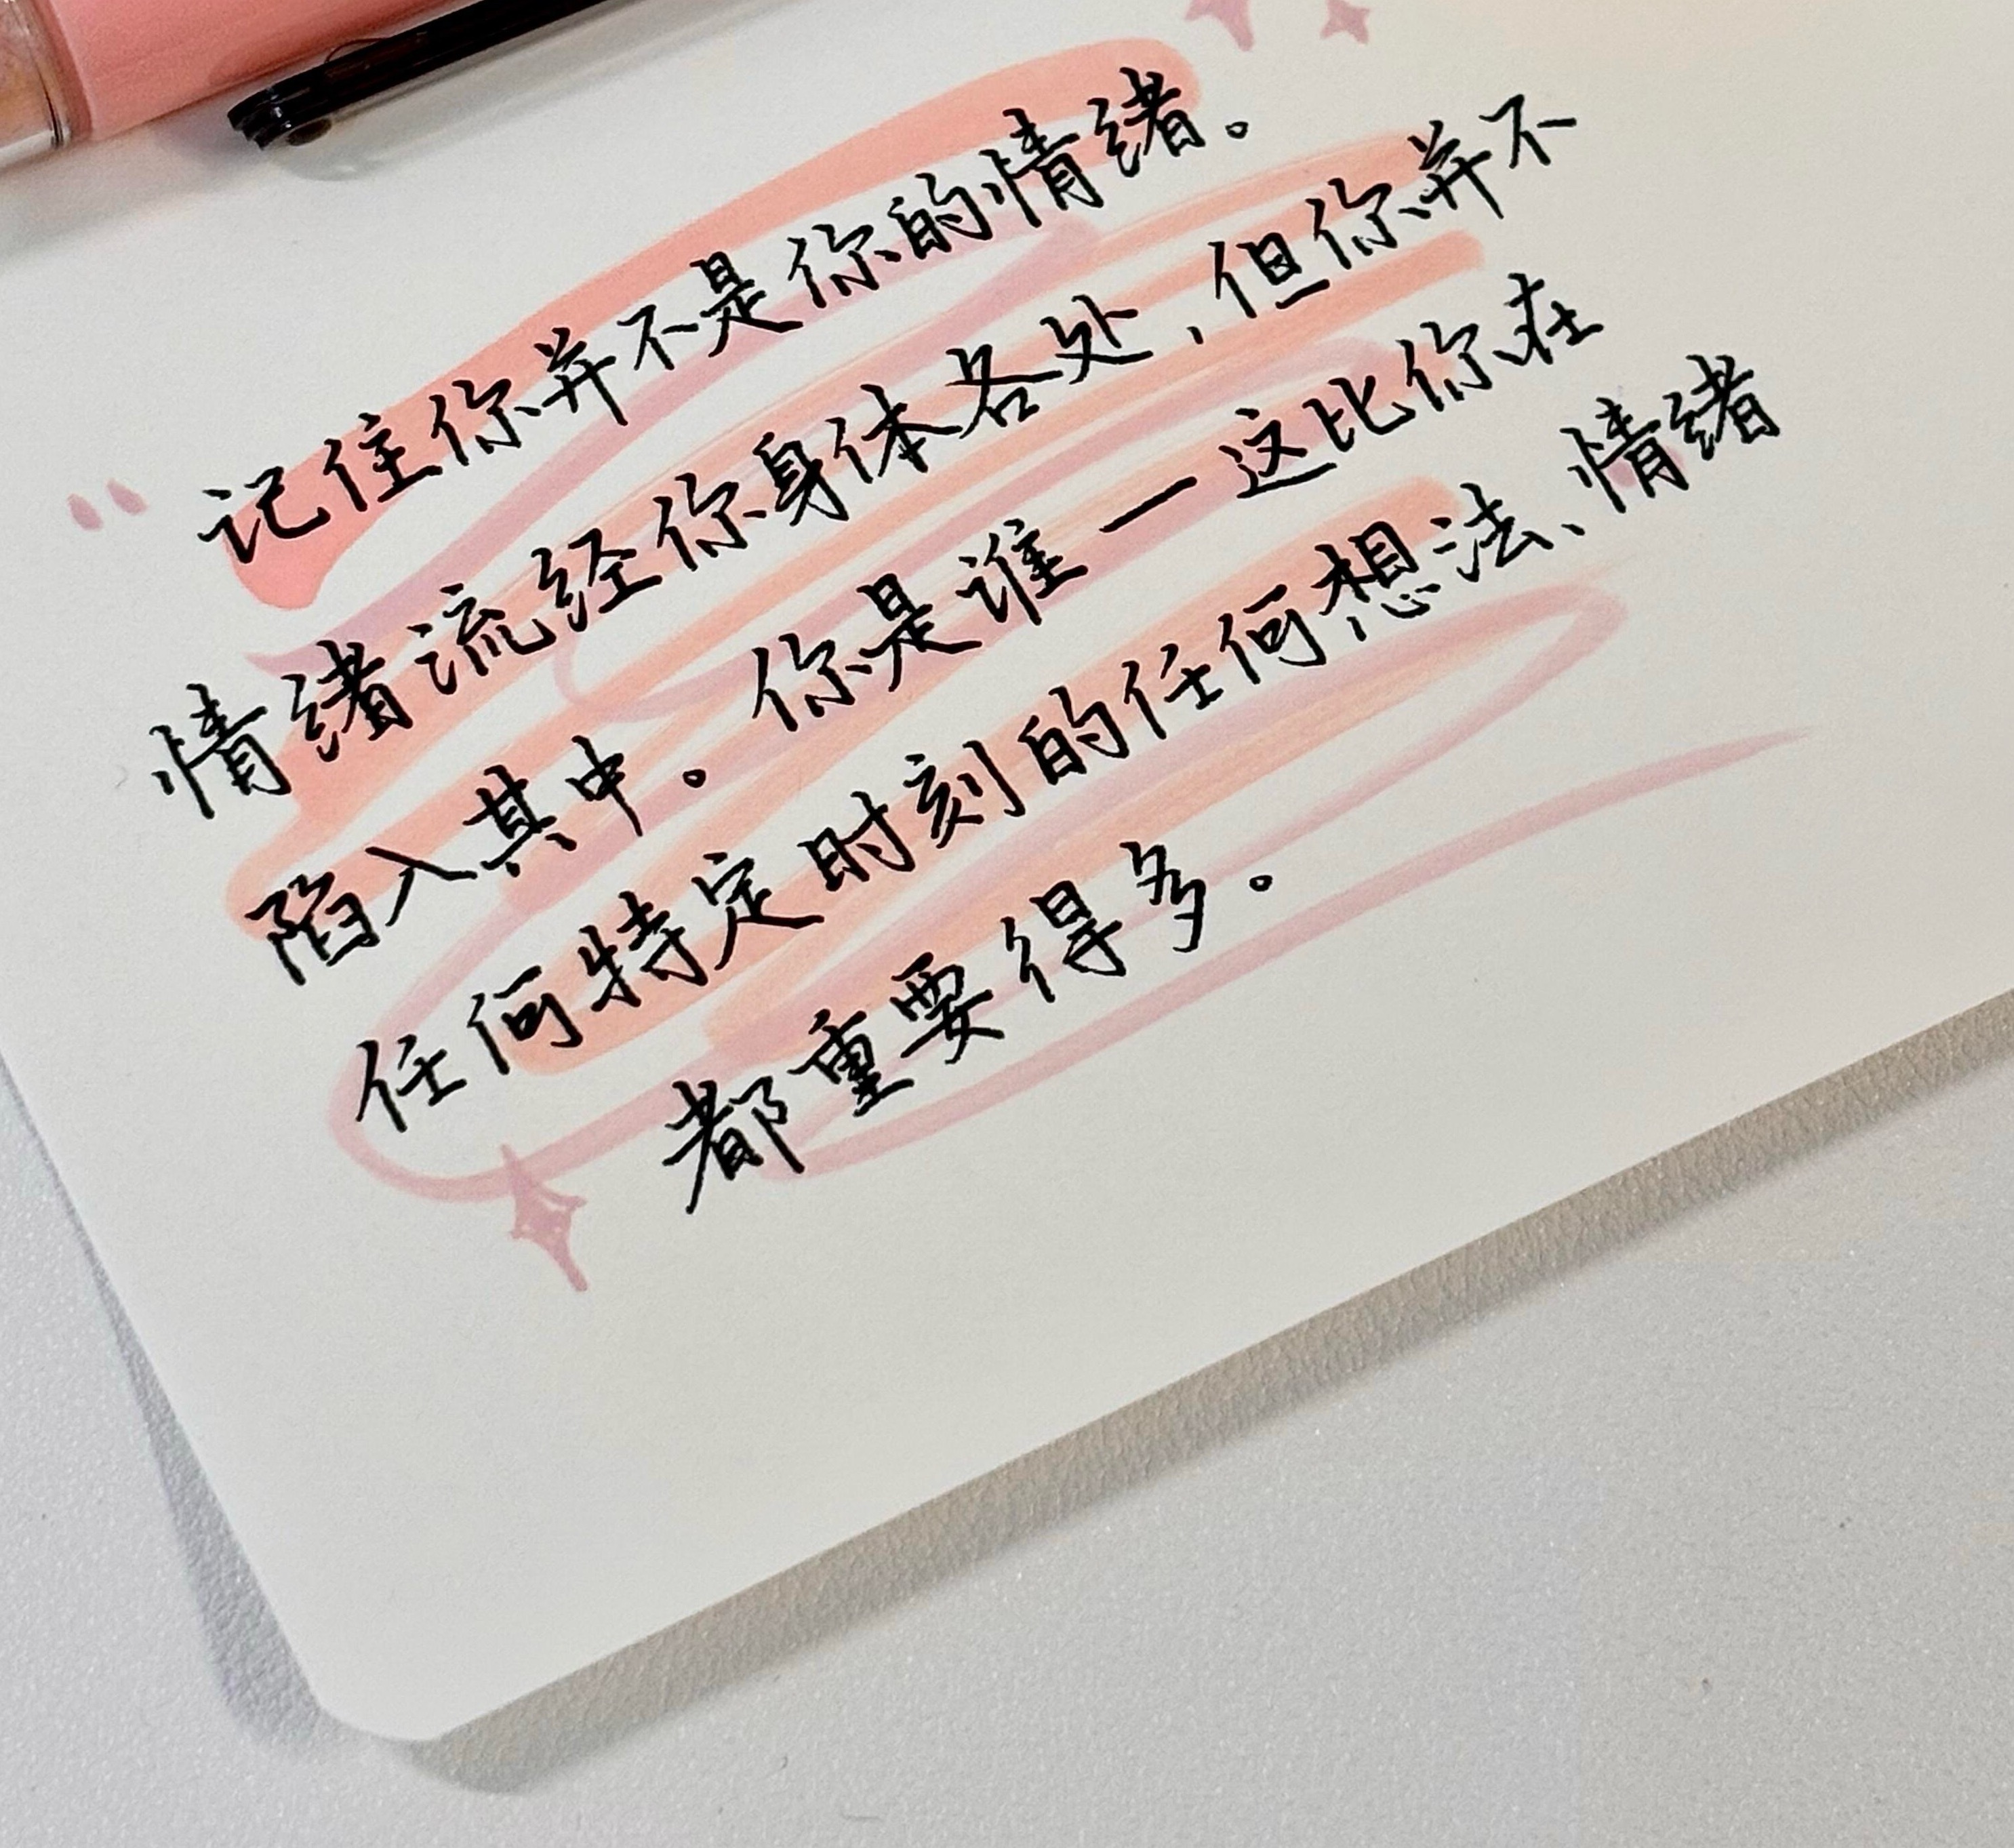 “记住你并不是你的情绪。
情绪流经你身体各处，但你并不
陷入其中。你是谁一这比你在
任何特定时刻的任何想法、情绪
都重要得多。